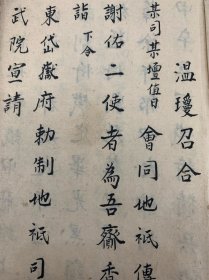 溫瓊召合
某司某壇值日　會同地祇傳
謝佑二使者為吾齎香
詣下令
東岱嶽府勅制地祇司
武院宣請